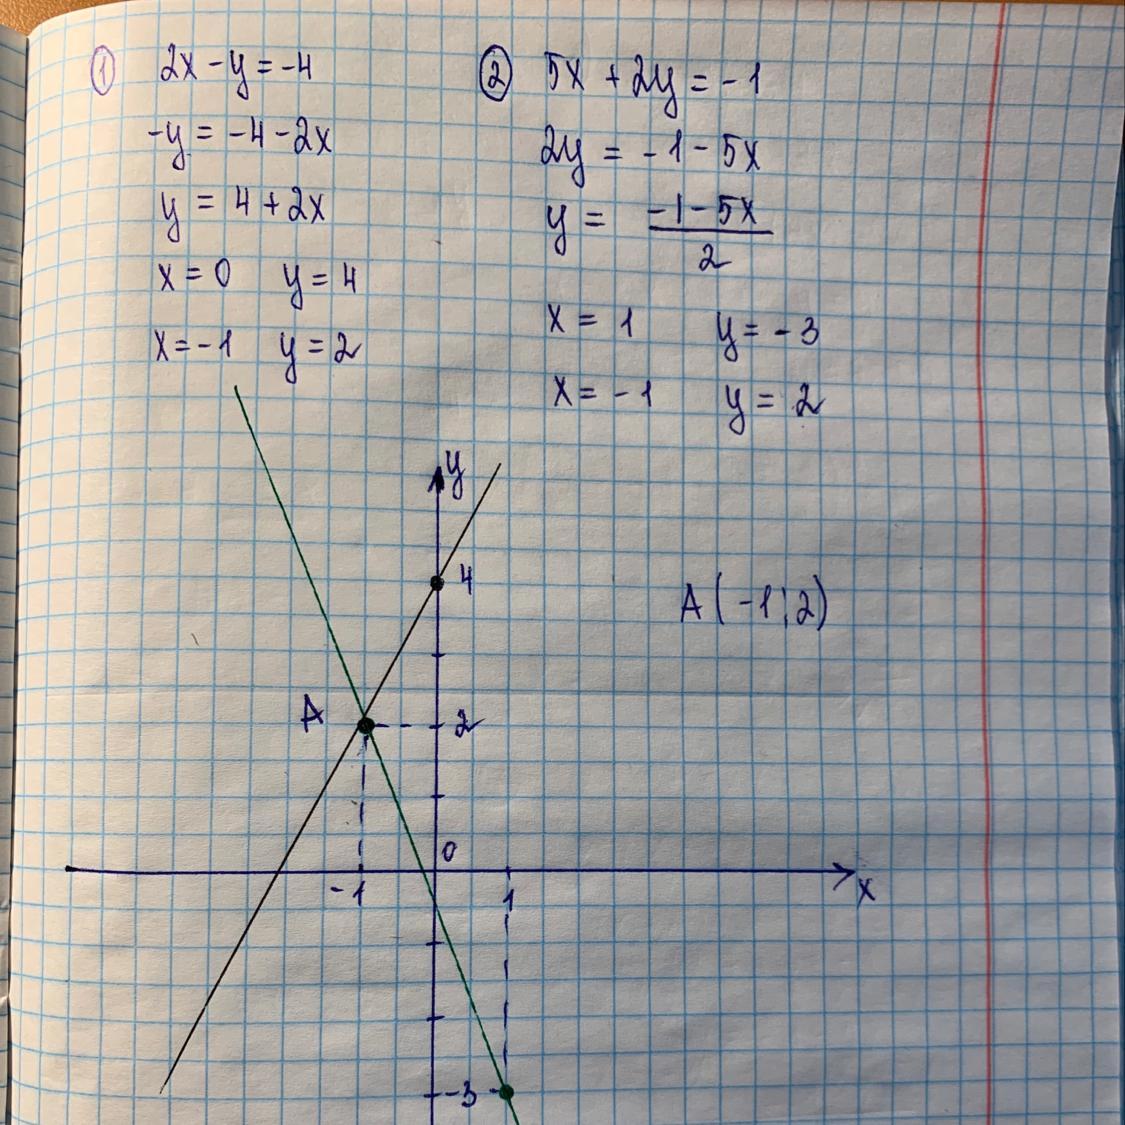 ① 2x - y = -4
-y = -4 - 2x
y = 4 + 2x
x = 0 y = 4
x = -1 y = 2
② 5x + 2y = -1
2y = -1 - 5x
y = \frac{-1 - 5x}{2}
x = 1 y = -3
x = -1 y = 2
y
4
A(-1; 2)
A
2
0
-1
1
x
-3